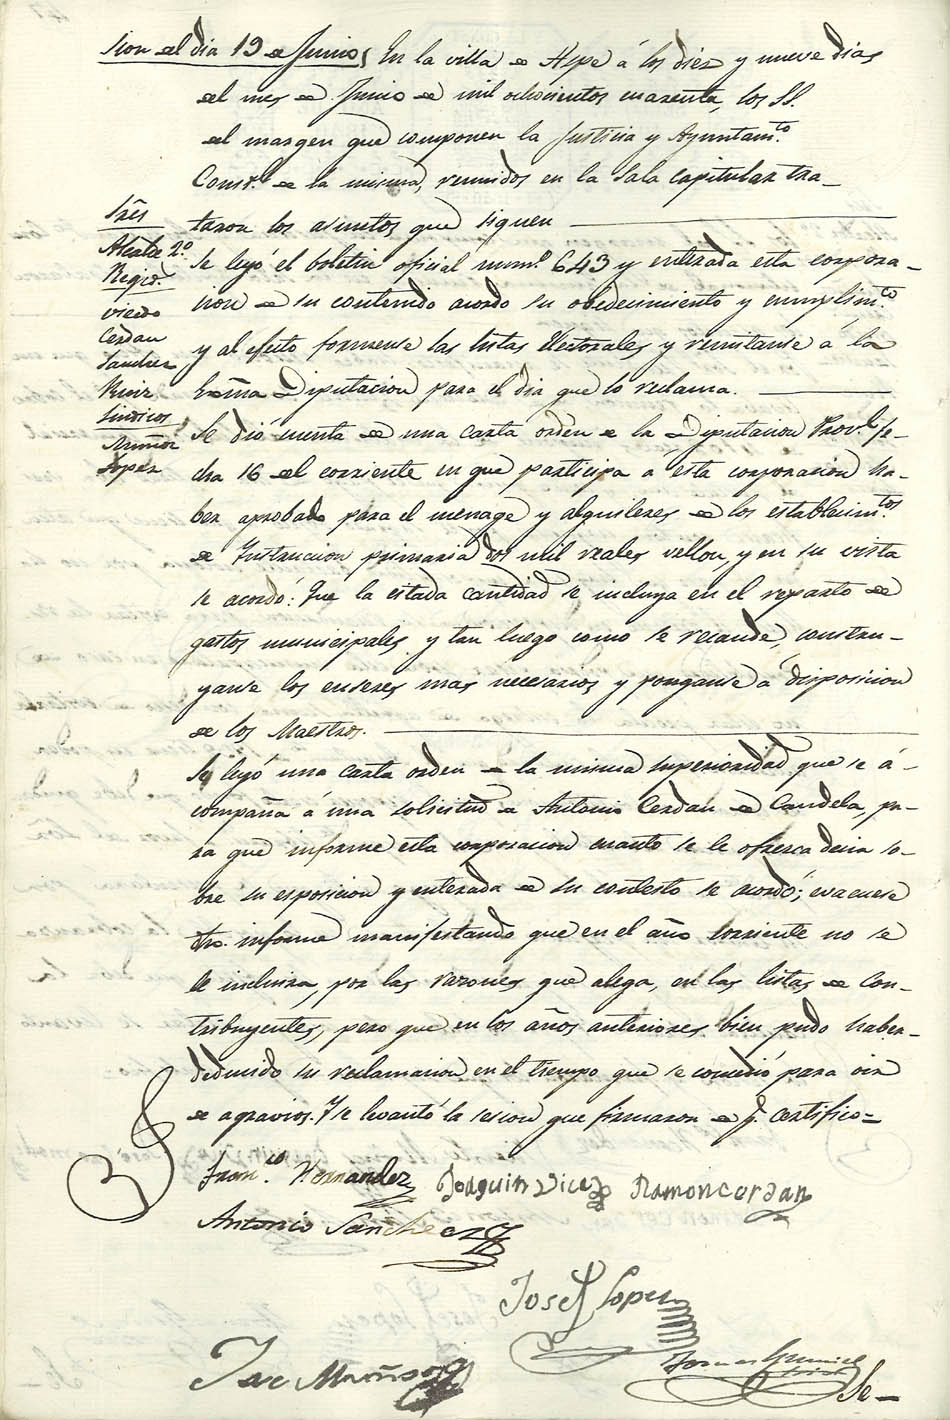 sion del dia 19 de Junio, En la villa de Aspe á los diez y nueve dias
del mes de Junio de mil ochocientos cuarenta, los SS.
del margen que componen la Justicia y Ayuntam.to
Const.l de la misma, reunidos en la Sala capitular tra_
taron los asuntos que siguen
Sres
Alcalde 2.º
Regid.s
Vicedo
Cerdan
Sanchez
Ruiz
Sindicos
Muñoz
Lopez
Se leyó el boletin oficial num.º 643 y enterada esta corpora_
cion de su contenido acordó su obedecimiento y cumplim.to
y al efecto formense las listas electorales y remitanse á la
Exma Diputacion para el dia que lo reclama.
Se dió cuenta de una carta orden de la Diputacion Prov.l fe_
cha 16 del corriente en que participa á esta corporacion ha_
ber aprobado para el menage y alquileres de los establecim.tos
de Instruccion primaria dos mil reales vellon, y en su vista
se acordó: Que la citada cantidad se incluya en el reparto de
gastos municipales y tan luego como se recaude, constru_
yanse los enseres mas necesarios y ponganse á disposicion
de los Maestros.
Se leyó una carta orden de la misma superioridad que se á_
compaña á una solicitud de Antonio Cerdan de Candela, pa_
ra que informe esta corporacion cuanto se le ofrezca decir so_
bre su esposicion y enterada de su contesto se acordó; evacuese
dho. informe manifestando que en el año corriente no se
le incluira, por las razones que alega, en las listas de Con_
tribuyentes, pero que en los años anteriores bien pudo haber_
deducido su reclamacion en el tiempo que se concedió para oir
de agravios. Y se levantó la sesion que firmaron de q. certifico=
Fran.co Hernandez Joaquin Vicedo Ramon cerdan
Antonio Sanchez
Josef Lopez
Jose Muñoz
Se_